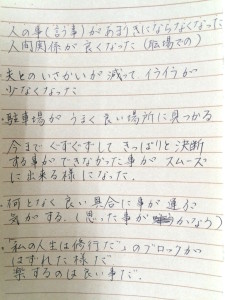 人の事(言う事)があまりきにならなくなった
人間関係が良くなった(職場での)
・夫とのいさかいが減って イライラが
少なくなった
・駐車場が うまく良い場所に見つかる
今まで ぐずぐずして きっぱりと 決断
する事ができなかった事が スムーズ
に出来る様になった.
・何となく 良い具合に事が運ぶ
気がする.(思った事が かなう)
・「私の人生は修行だ」のブロックが
はずれた様だ
楽するのは良い事だ.